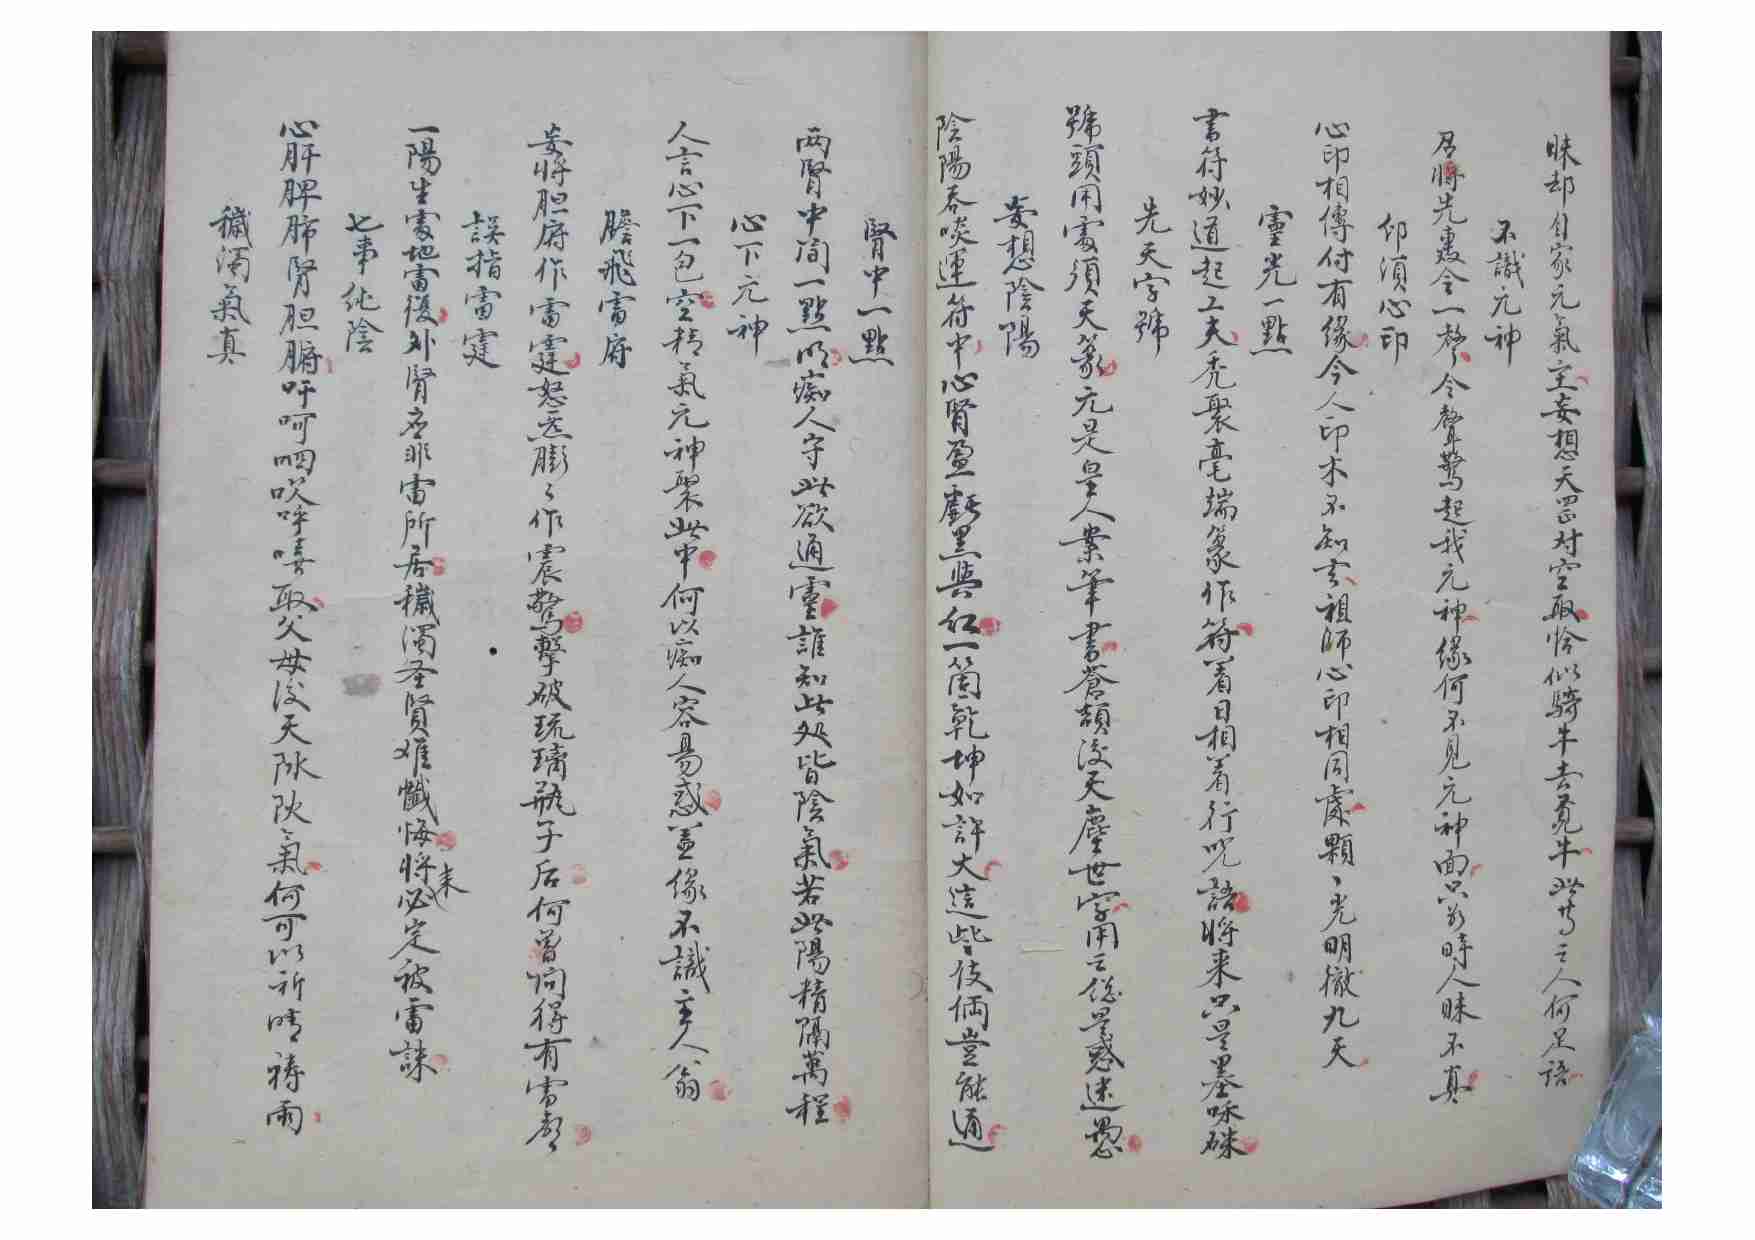 昧却自家元氣主妄想天罡对空取恰似騎牛去覓牛此等之人何足語
不識元神
召將先裹令一聲令聲驚起我元神緣何不見元神面只為時人昧不真
印須心印
心印相傳付有緣今人印木不知玄祖師心印相同處顆〻光明徹九天
靈光一點
書符妙道起工夫禿聚毫端篆作符着日相着行咒語將来只是墨味硃
先天字號
號頭用處須天篆元是皇人案筆書蒼頡後天塵世字用之總是惑迷愚
妄想陰陽
陰陽吞啖運符中心腎盈虧黑與红一箇乾坤如許大這些伎倆豈能通
腎中一點
两腎中间一點明痴人守此欲通靈誰知此处皆陰氣若此陽精隔萬程
心下元神
人言心下一包空精氣元神聚此中何以痴人容易惑盖缘不識主人翁
膽飛雷府
妄將胆府作雷霆怒氣膨〻作震驚擊破琉璃瓶子后何曾問得有雷声
誤指雷霆
一陽生處地雷復外腎應非雷所居穢濁圣賢难懺悔將来必定被雷誅
七事純陰
心肝脾肺腎胆腑吁呵呬吹呼嘻取父母後天阴阳氣何可以祈晴祷雨
穢濁氣真